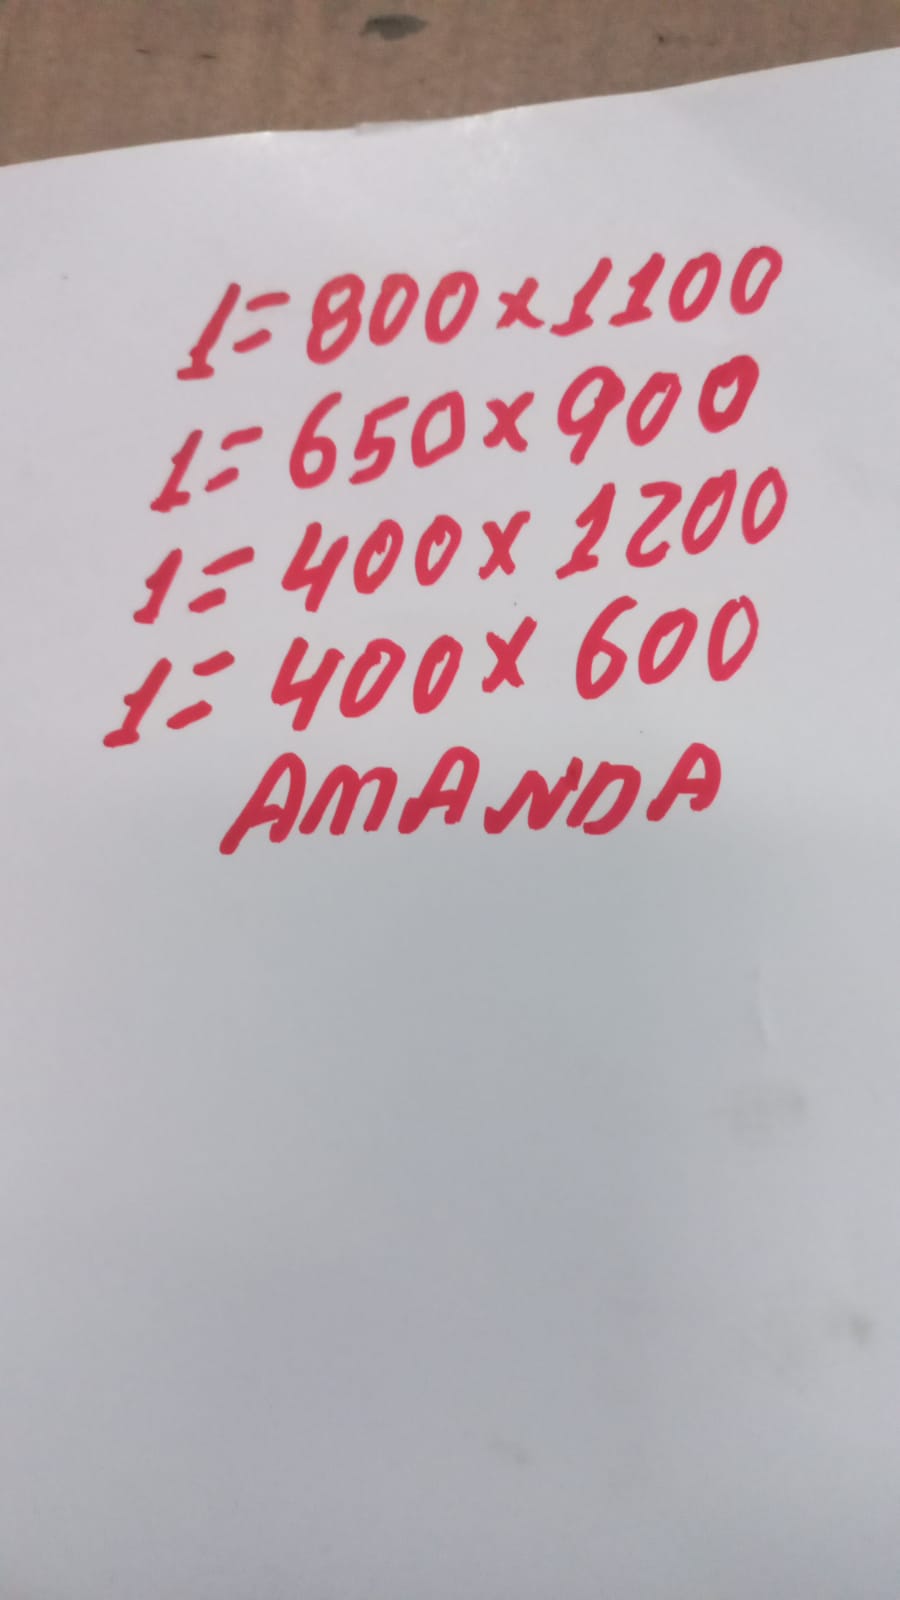 1=800x1100
1=650x900
1=400x1200
1=400x600
AMANDA